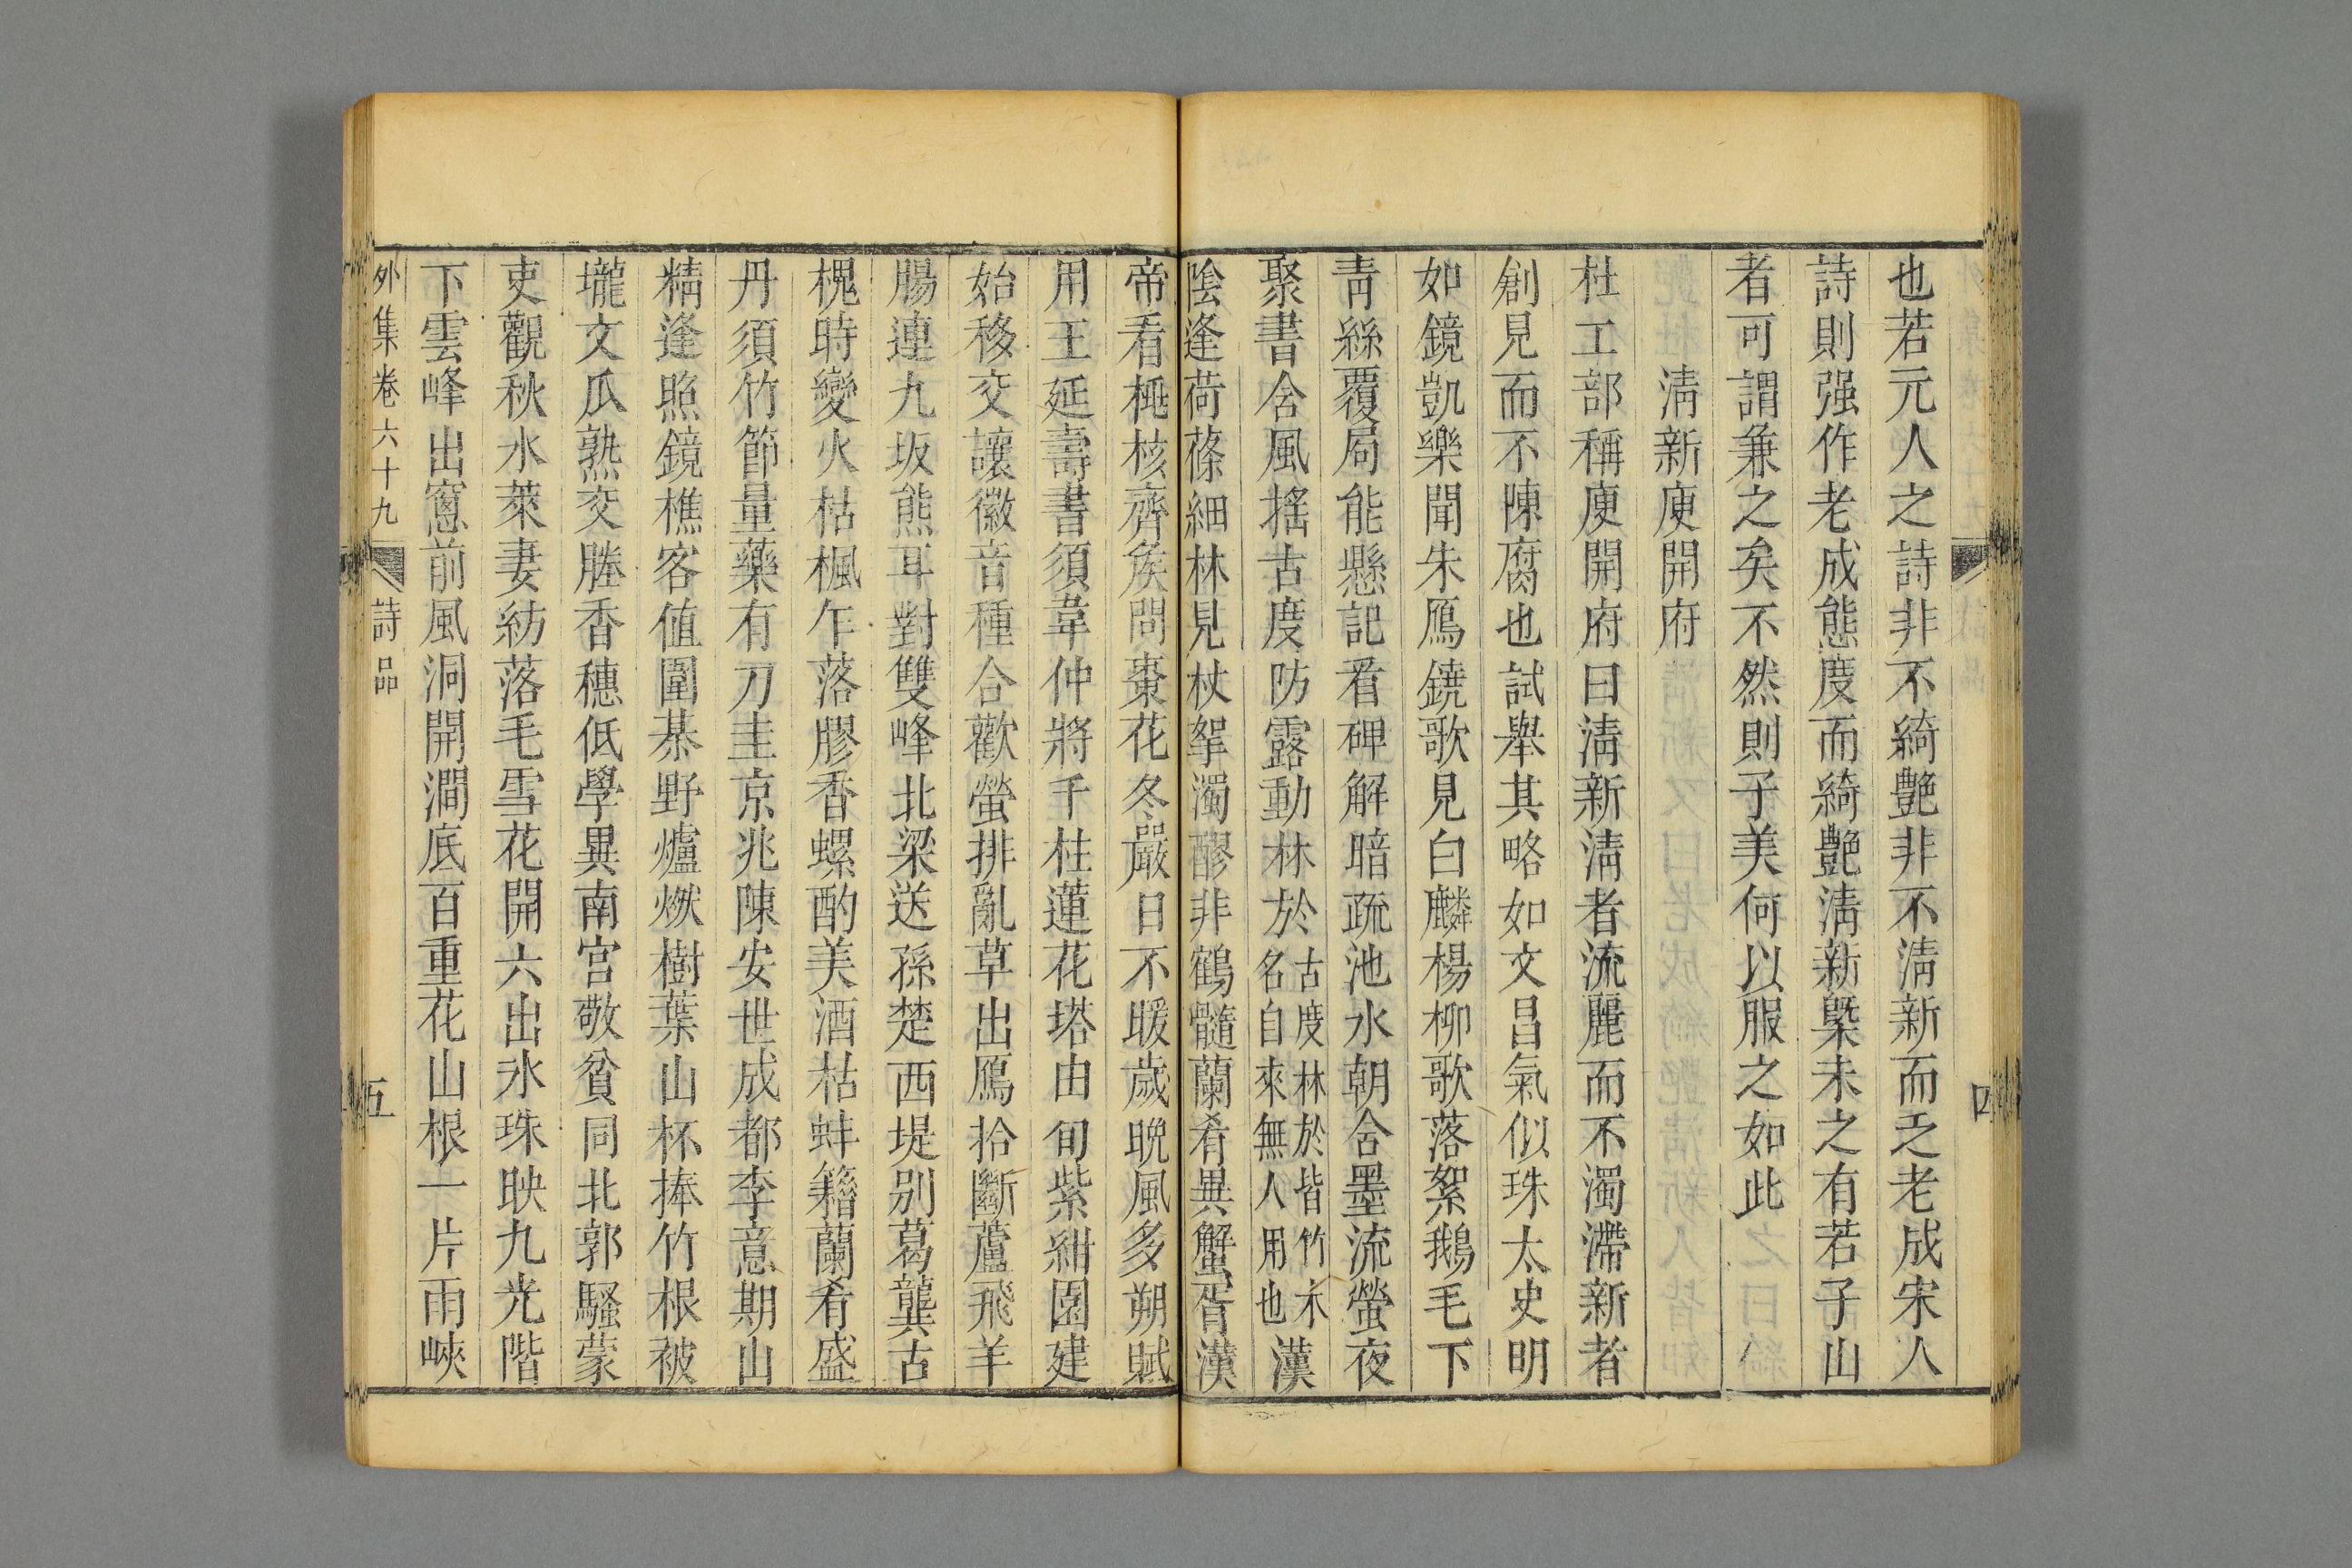 也若元人之詩非不綺艷非不淸新而乏老成宋人
詩則强作老成態度而綺艷淸新槩未之有若子山
者可謂兼之矣不然則子美何以服之如此
淸新庾開府
杜工部稱庾開府曰淸新淸者流麗而不濁滯新者
創見而不陳腐也試舉其略如文昌氣似珠太史明
如鏡凱樂聞朱鴈鐃歌見白麟楊柳歌落絮鵝毛下
靑絲覆局能懸記看碑解暗疏池水朝含墨流螢夜
聚書含風搖古度防露動林於古度林於皆竹木名自來無人用也漢
陰逢荷蓧細林見杖挐濁醪非鶴髓蘭肴異蟹胥漢
帝看桃核齊矦問棗花冬嚴日不暖歲晚風多朔賦
用王延壽書須韋仲將千柱蓮花塔由旬紫紺園建
始移交讓徽音種合歡螢排亂草出鴈拾斷蘆飛羊
腸連九坂熊耳對雙峰北梁送孫楚西堤別葛龔古
槐時變火枯楓乍落膠香螺酌美酒枯蚌籍蘭肴盛
丹須竹節量藥有刀圭京兆陳安世成都李意期山
精逢照鏡樵客値圍棊野爐燃樹葉山杯捧竹根被
壠文瓜熟交塍香穗低學異南宮敬貧同北郭騷蒙
吏觀秋水萊妻紡落毛雪花開六出氷珠映九光階
下雲峰出窻前風洞開澗底百重花山根一片雨峽
外集卷六十九
詩品
五
四